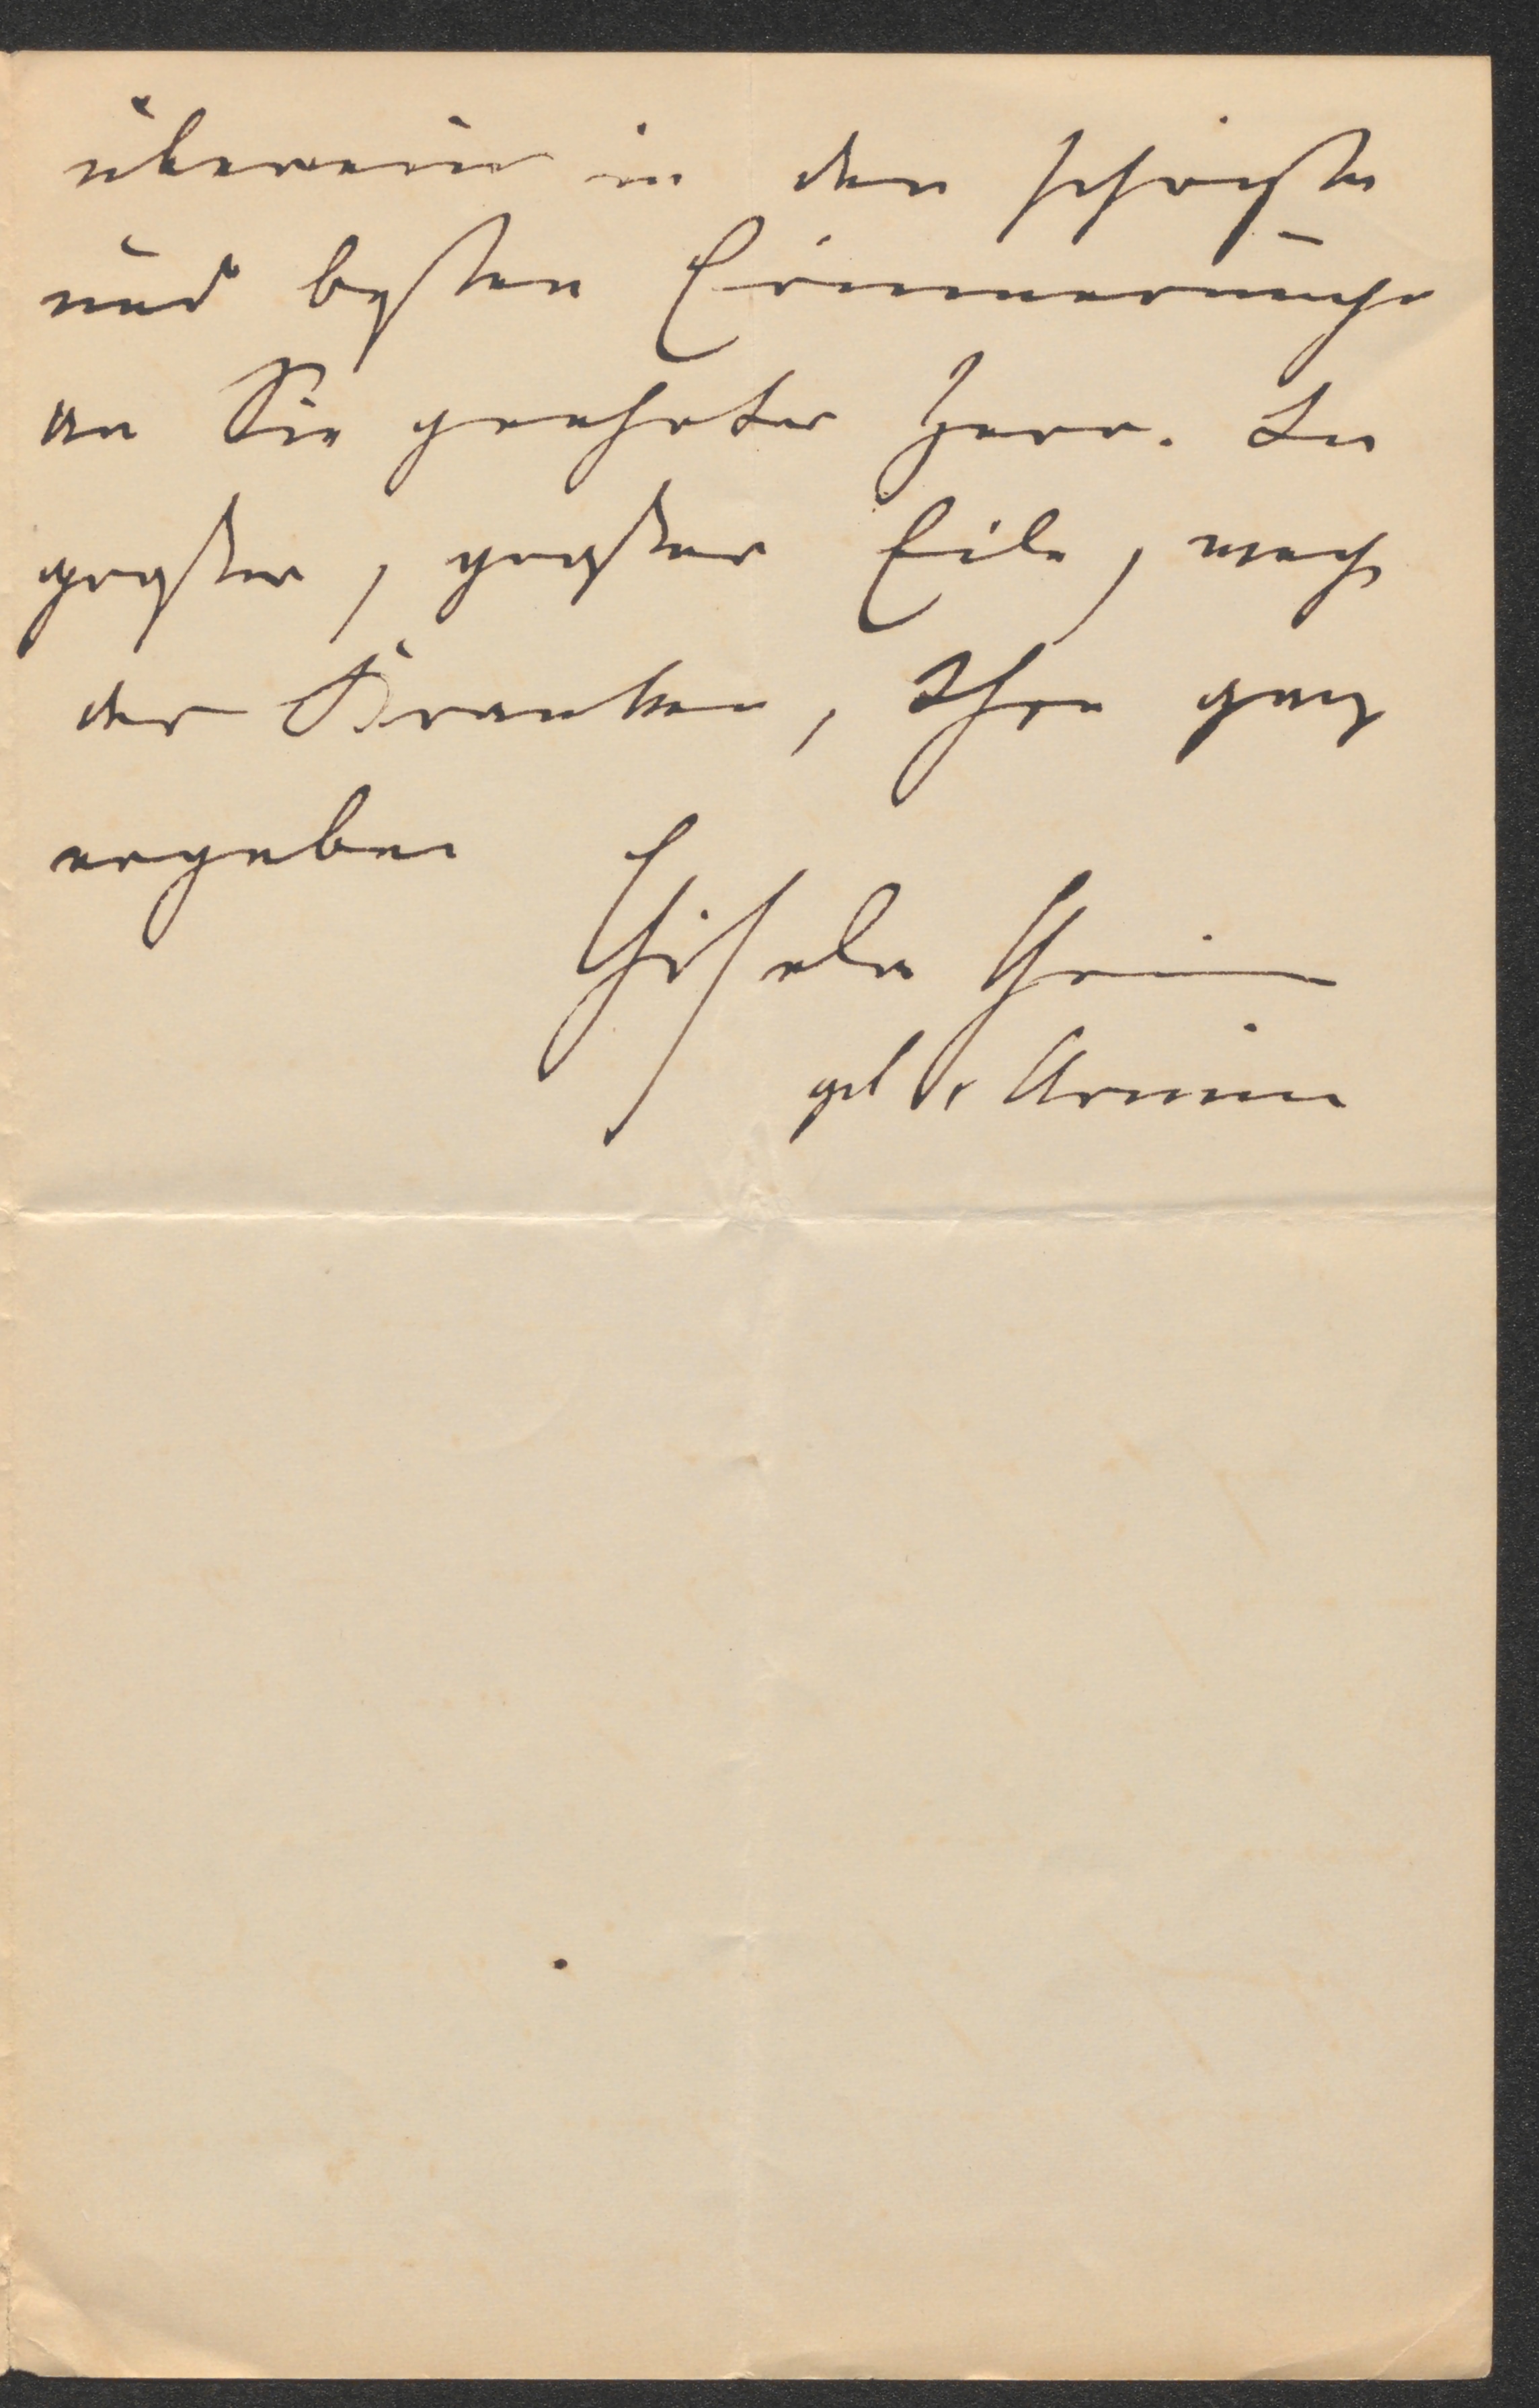 überein in den schönsten
und besten Erinnerungen
an Sie geehrter Herr. In
großer, großer Eile, weg.
der Kranken, Ihre ganz
ergeben
Gisela Grimm
geb v Arnim